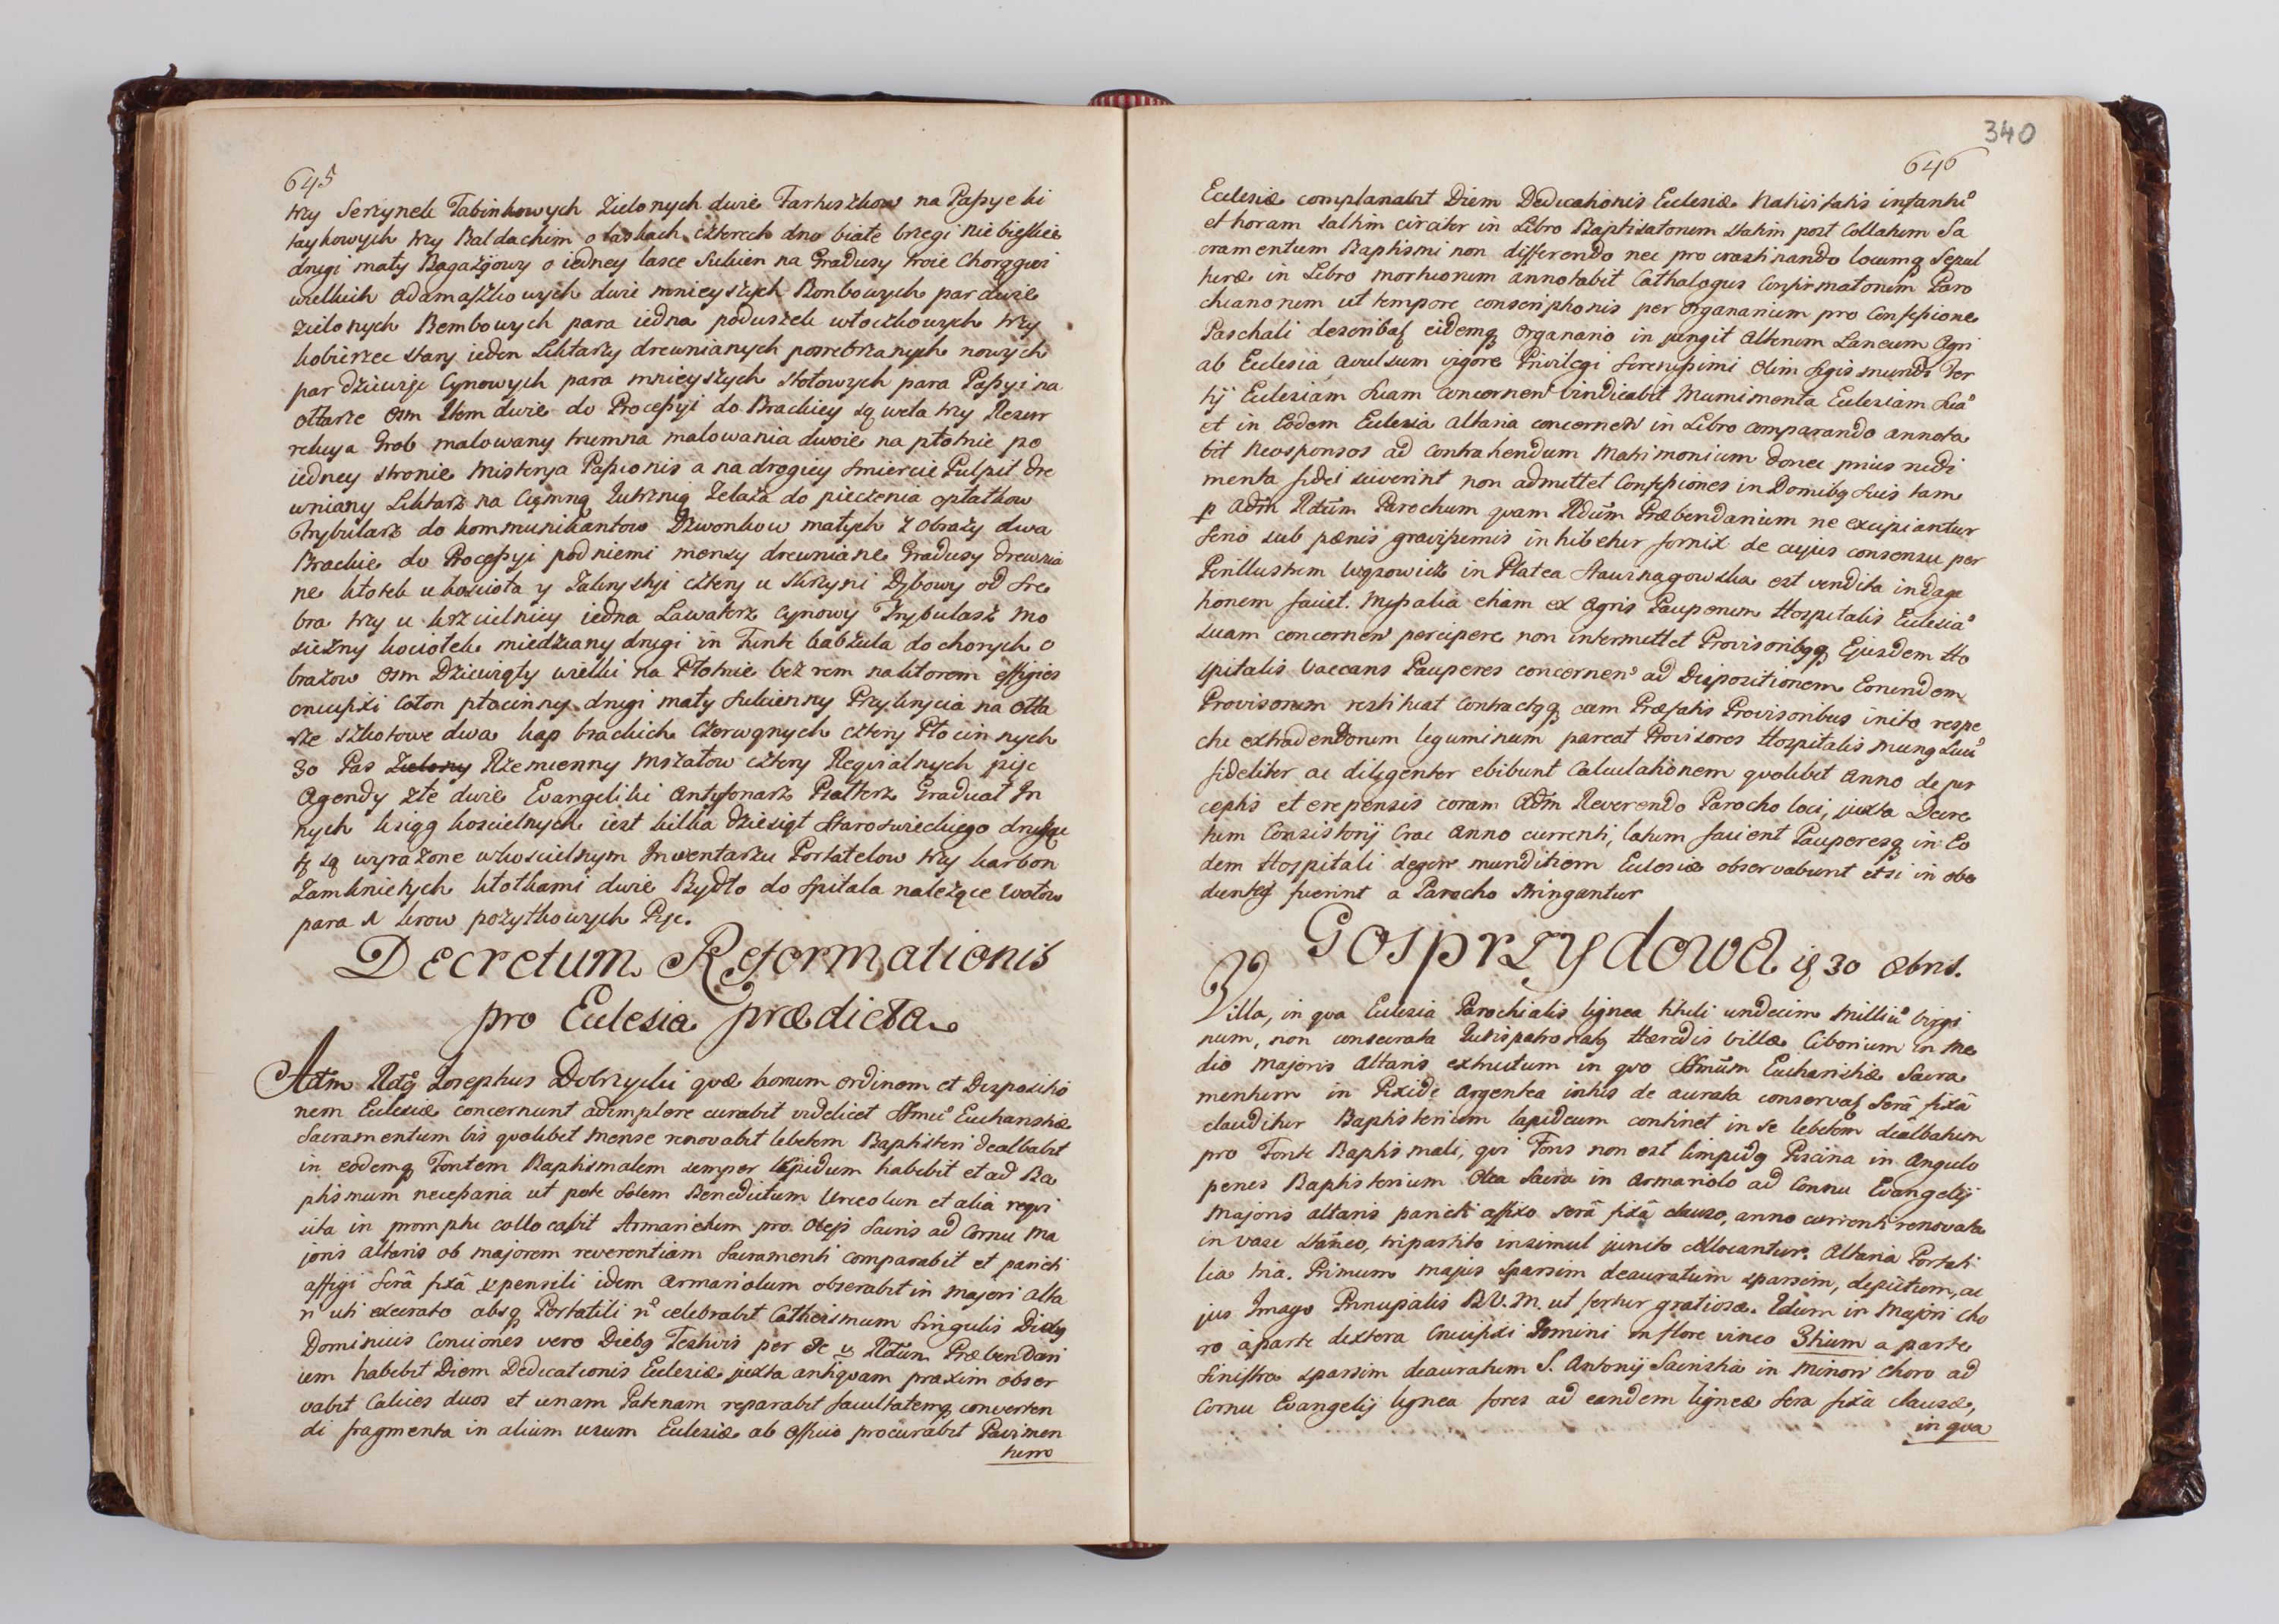 645
trzy Serzynek Tabinkowych Zielonych dwie Fartuszkow na Passye ki
taykowych trzy Baldachim o laskach czterech dno białe brzegi niebieskie
drugi mały Bagażyowy o iedney lasce Sukien na Gradusy troie Chorągwi
wielkich Adamaszkowych dwie mnieyszych Bombowych par dwie
Zielonych Bembowych para iedna poduszek włoczkowych trzy
kobierzec stary ieden Lichtarzy drewnianych posrebrzanych nowych
par Dziewięć Cynowych para mnieyszych stołowych para Passyi na
ołtarze osm Item dwie do Processyi do Brackiey są wela trzy Resur
rekcya Grob malowany trumna malowania dwoie na płotnie po
iedney stronie Misterya Passionis a na drogiey smiercie Pulpit dre
wniany Lichtarz na Ciemną Iutrznią Zelaza do pieczenia opłatkow
Trybularz do kommunikantow Dzwonkow małych z obrazy dwa
Brackie do Processyi pod niemi mensy drewniane Gradusy drewnia
ne kłotek u koscioła y Zakrystyi cztery u Skrzyni Dębowy od sre
bra trzy u krzcielnicy iedna Lawaterz Cynowy Trybularz mo
siezny kociołek miedziany drugi in Funte kabzula do chorych o
brazow osm Dziewiąty wielki na Płotnie bez ram nalitorem effigies
crucifixi Coton płocienny drugi mały sukienny Przykrycia na otta
rze szkotowe dwa kap brackich Czerwonych cztery Płocinnych
30 Pas Zielony Rzemienny Mszałow cztery Requialnych pięc
Agendy złe dwie Evangeliki Antyfonarz Psałterz Graduał In
nych ksiąg koscielnych iest kilka dziesiąt Staroswieckiego druku
kt są wyrażone w koscielnym Inwentarzu Portatelow trzy karbon
Zamknietych kłotkami dwie Bydło do Spitala należące wołow
para A krow pożytkowych Pięc.
Decretum Reformationis
pro Ecclesia prædicta
Adm Rdg Josephus Dobrzycki quæ bonum ordinem et Dispositio
nem Ecclesiæ concernunt adimplere curabit videlicet SSmū Eucharistiæ
Sacramentum bis quolibet Mense renovabit lebetem Baptisteri dealbabit
in eodemq Fontem Baptismalem semper lipidum habebit et ad Ba
ptismum necessaria ut pote Solem Benedictum Urceolun et alia requi
sita in promptu collocabit Armarictum pro Oleis Sacris ad Cornu Ma
joris altaris ob majorem reverentiam Sacramenti comparabit et parieti
affigi Serâ fixâ v pensili idem armariolum obserabit in majori alta
ri uti execrato absq Portatili nō celebrabit Cathecismum Singulis Diebg
Dominicis Conciones vero Diebg Festivis per se v Rdūm Præbendari
um habebit Diem Dedicationis Ecclesiæ juxta antiquam praxim obser
vabit Calices duos et unam Patenam reparabit facultatemq converten
di fragmenta in alium usum Ecclesiæ ab Officio procurabit Pavimen
tum
340
646
Ecclesiæ complanabit Diem Dedicationis Ecclesiæ Nativitatis infantiū
et horam saltim circiter in Libro Baptisatorum statim post Collatum Sa
cramentum Baptismi non differendo nec pro crastinando locumq Sepul
turæ in Libro mortuorum annotabit Cathalogus Confirmatorum Paro
chianorum ut tempore conscriptionis per Organarium pro Confessione
Paschali describat eidemq organario in jungit Alterum Laneum Agri
ab Ecclesia avulsum vigore Privilegi Serenissimi olim Sigismundi Ter
tij Ecclesiam Suam Concernen vindicabit Munimenta Ecclesiam Suā
et in Eodem Ecclesia Altaria concernen in Libro comparando annota
bit Neosponsos ad Contrahendum Matrimonium donec prius rudi
menta fidei sciverint non admittet Confessiones in Domibg Suis tam
p Adm Rdūm Parochum quam Rdūm Præbendarium ne excipiantur
Serio sub pænis gravissimis inhibetur fornix de cujus consensu per
Perillustrem Wąsowicz in Platea Staurnagowska est vendita indaga
tionem faciet. Missalia etiam ex Agris Pauperum Hospitalis Ecclesiā
suam concernen percipere non intermittet Provisoribgq Ejusdem Ho
spitalis Vaccans Pauperes concernen ad Dispositionem Eorundem
Provisorum restituat Contractgq cum Præfatis Provisoribus inito respe
ctu extradendorum leguminum pareat Provisores Hospitalis Mung Suū
fideliter ac diligenter obibunt Calculationem quolibet Anno de per
ceptis et expensis coram Adm Reverendo Parocho loci, juxta Decre
tum Consistorij Crac Anno currenti, latum facient Pauperesq in Eo
dem Hospitali degere munditiem Ecclesiæ observabunt et si in obe
dientes fuerint a Parocho stringantur
Gosprzydowa ig 30 Xbris.
Villa, in qua Ecclesia Parochialis lignea tituli undecim Milliū Virgi
num, non consecrata Jurispatronatg Hæredis villæ Ciborium in Me
dio Majoris Altaris extructum in quo SSmūm Eucharistiæ Sacra
mentum in Pixide Argentea intus de aurata conservat Serâ fixâ
clauditur Baptisterium lapideum continet in se lebetem dealbatum
pro Fonte Baptismali, qvi Fons non est limpidg Piscina in Angulo
penes Baptisterium Olea Sacra in Armariolo ad Cornu Evangelij
Majoris altaris parieti affixo serâ fixâ clauso, anno currenti renovata
in Vase stanneo, tripartito insimul juncto collocantur. Altaria Portati
lia tria. Primum majus sparsim deauratum sparsim, depictum, cu
jus Imago Principalis B.V.M. ut fertur gratiosa. 2dum in Majori Cho
ro a parte dextera Crucifixi Domini in flore vineo 3tium a parte
Sinistra sparsim deauratum S. Antonij Sacristia in Minori Choro ad
Cornu Evangelij lignea fores ad eandem ligneæ Sera fixâ clausæ,
in qva